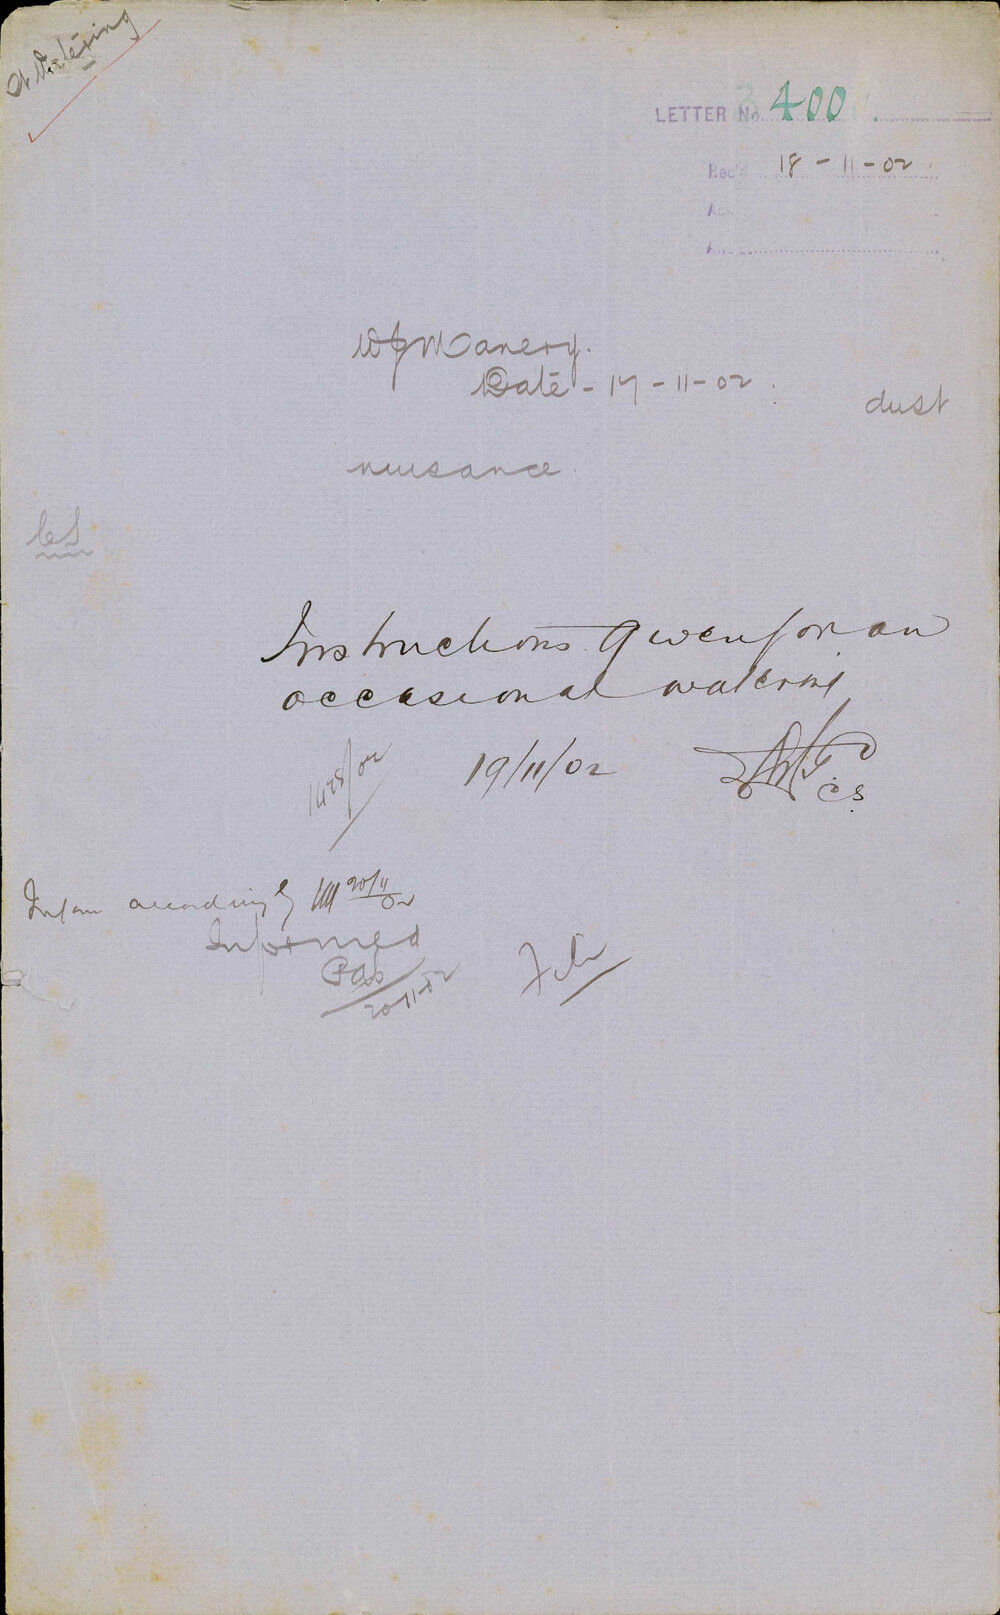 Watering
LETTER No. 400
Rec'd 18-11-02
Ack
Ans
Date - 17-11-02
dust
nuisance
CS
Instructions given for an
occasional watering
19/11/02
CS
1428/02
Inform accordingly 20/11/02
Informed
20-11-02
File